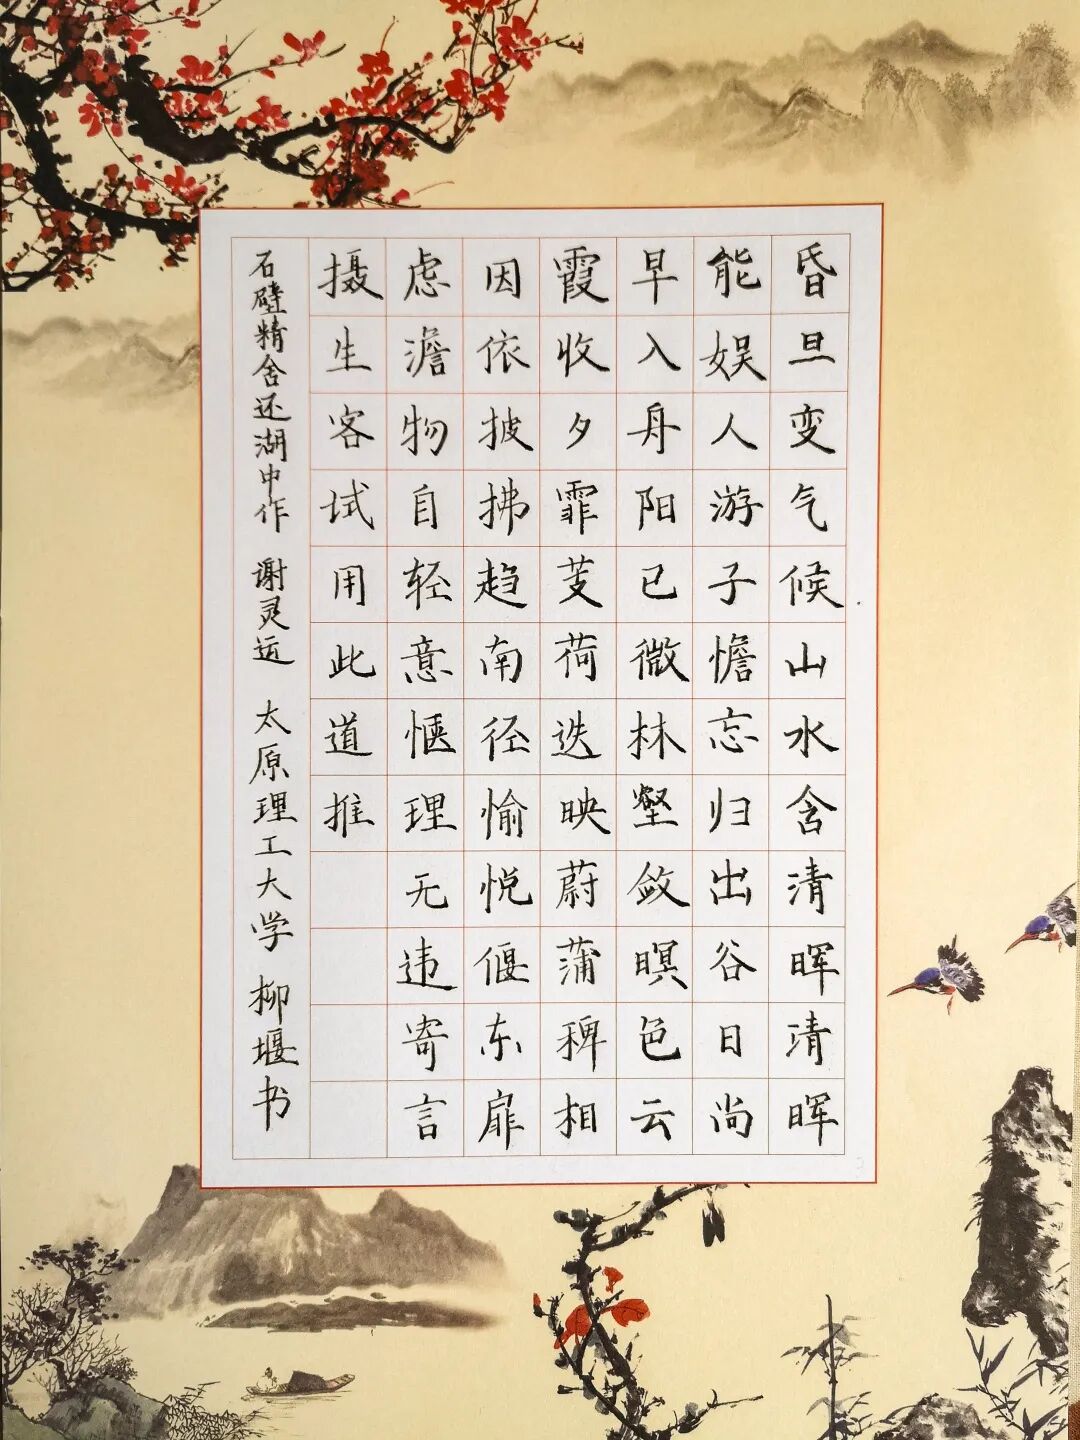 昏旦变气候山水含清晖清晖
能娱人游子憺忘归出谷日尚
早入舟阳已微林壑敛暝色云
霞收夕霏芰荷迭映蔚蒲稗相
因依披拂趋南径愉悦偃东扉
虑澹物自轻意惬理无违寄言
摄生客试用此道推
石壁精舍还湖中作 谢灵运 太原理工大学 柳堰书